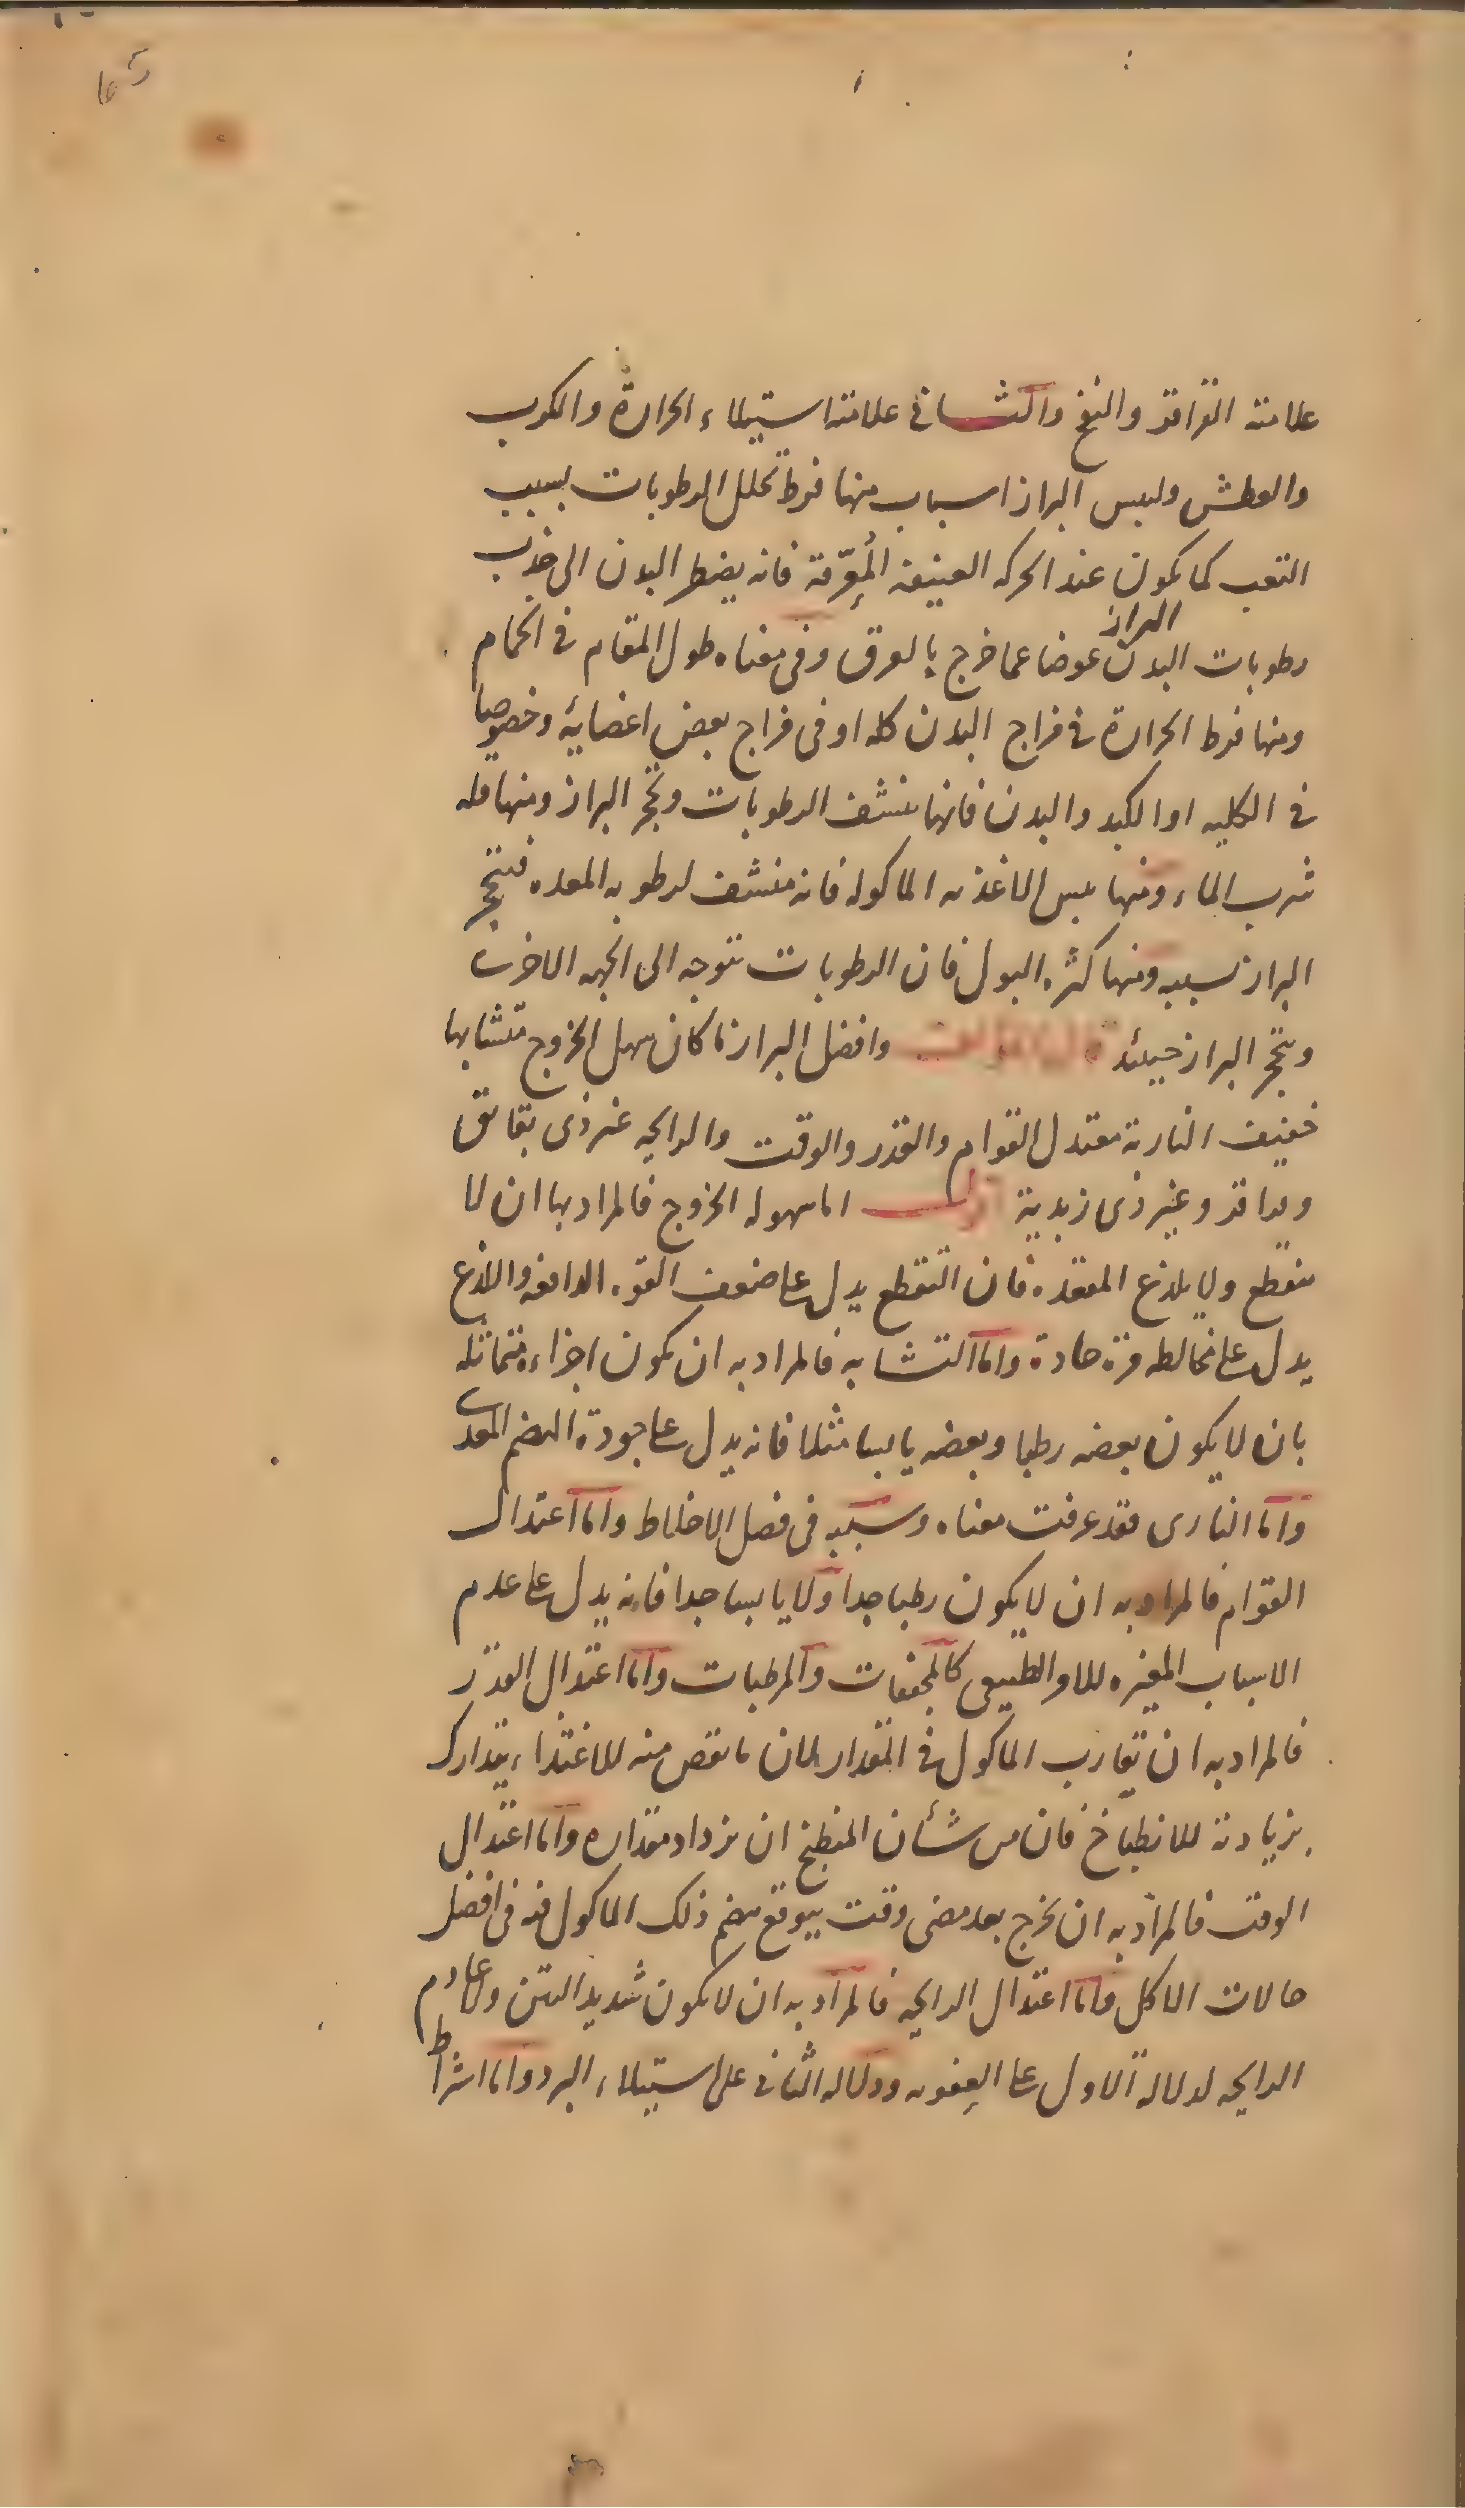 علامته القراقر والنفخ والثانى علامته استيلاء الحرارة والكرب
والعطش وليبس البراز اسباب منها فرط تحلل الرطوبات بسبب
التعب كما يكون عند الحركه العنيفه المُعرّقة فانه يضطر البدن الى جذب
البراز
رطوبات البدن عوضا عما خرج بالعرق وفى معناه طول المقام فى الحمام
ومنها فرط الحرارة فى مزاج البدن كله او فى مزاج بعض اعضايه وخصوصا
فى الكليه او الكبد والبدن فانها تنشف الرطوبات وتحجر البراز ومنها قله
شرب الماء ومنها يبس الاغذيه الماكوله فانه منشف لرطوبه المعده فيتحجر
البراز بسببه ومنها كثره البول فان الرطوبات تتوجه الى الجهه الاخرى
ويتحجر البراز حينئذ وافضل البراز ما كان سهل الخروج متشابها
خفيف الناريه معتدل القوام والقدر والوقت والرايحه غير ذى بقابق
وقراقر وغير ذى زبدية اما سهوله الخروج فالمراد بها ان لا
يتقطع ولا يلذع المقعده فان التقطع يدل على ضعف القوه الدافعه واللذع
يدل على مخالطه مرة حادة واما التشابه فالمراد به ان يكون اجزاءه متماثله
بان لا يكون بعضه رطبا وبعضه يابسا مثلا فانه يدل على جودة الهضم المعدى
واما النارى فقد عرفت معناه وسببه فى فصل الاخلاط واما اعتدال
القوام فالمراد به ان لا يكون رطبا جدا ولا يابسا جدا فانه يدل على عدم
الاسباب المغيره للامر الطبيعى كالمجففات والمرطبات واما اعتدال القدر
فالمراد به ان يقارب الماكول فى المقدار لان ما نقص منه للاغتذاء يتدارك
بزيادته للانطباخ فان من شأن المنطبخ ان يزداد مقداره واما اعتدال
الوقت فالمراد به ان يخرج بعد مضى وقت يتوقع هضم ذلك الماكول فيه فى افضل
حالات الاكل واما اعتدال الرايحه فالمراد به ان لا يكون شديد النتن ولا عادم
الرايحه لدلاله الاول على العفونه ودلاله الثانى على استيلاء البرد واما اشتراط